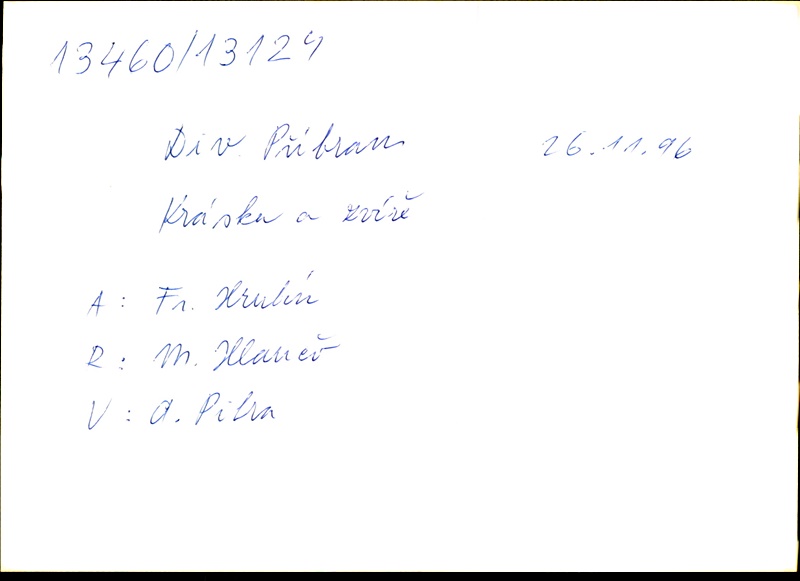 13460/13124
Div. Příbram 26.11.96
Kráska a zvíře
A: Fr. Hrubín
R: M. Hlaucō
V: A. Pilra